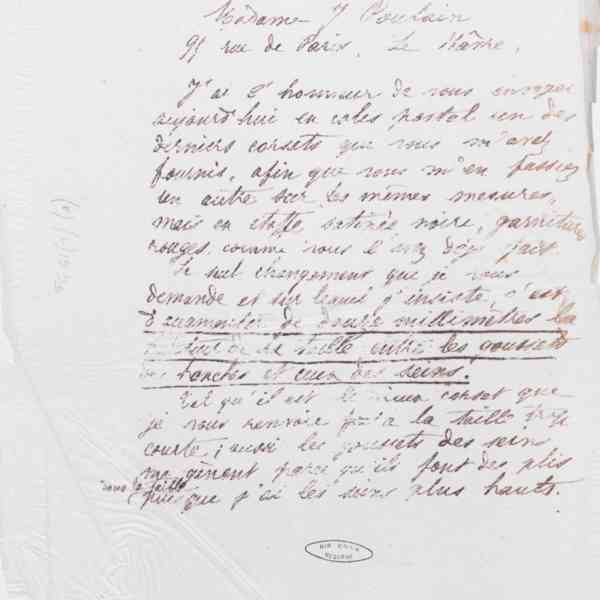 Madame J Poulain
95 rue de Paris, Le Hâvre,
J'ai l'honneur de vous envoyer
aujourd'hui en colis postal un des
derniers corsets que vous m'avez
fournis, afin que vous m'en fassiez
un autre sur les mêmes mesures,
mais en étoffe satinée noire, garnitures
rouges, comme vous l'avez déjà fait.
Le seul changement que je vous
demande et sur lequel j'insiste, c'est
d'augmenter de douze millimètres la
de la taille entre les goussets
des hanches et ceux des seins.
Tel qu'il est le vieux corset que
je vous renvoie m'a la taille trop
courte; aussi les goussets des seins
me gênent parce qu'ils font des plis
dans la taille
puisque j'ai les seins plus hauts.